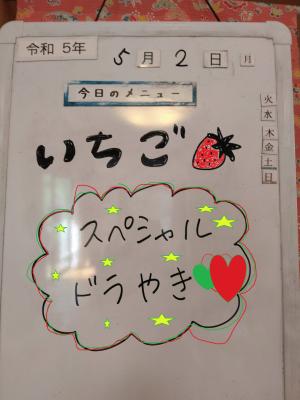 令和 5年
5月2日 月
火
水
木
金
土
日
今日のメニュー
いちご
スペシャル
ドラやき